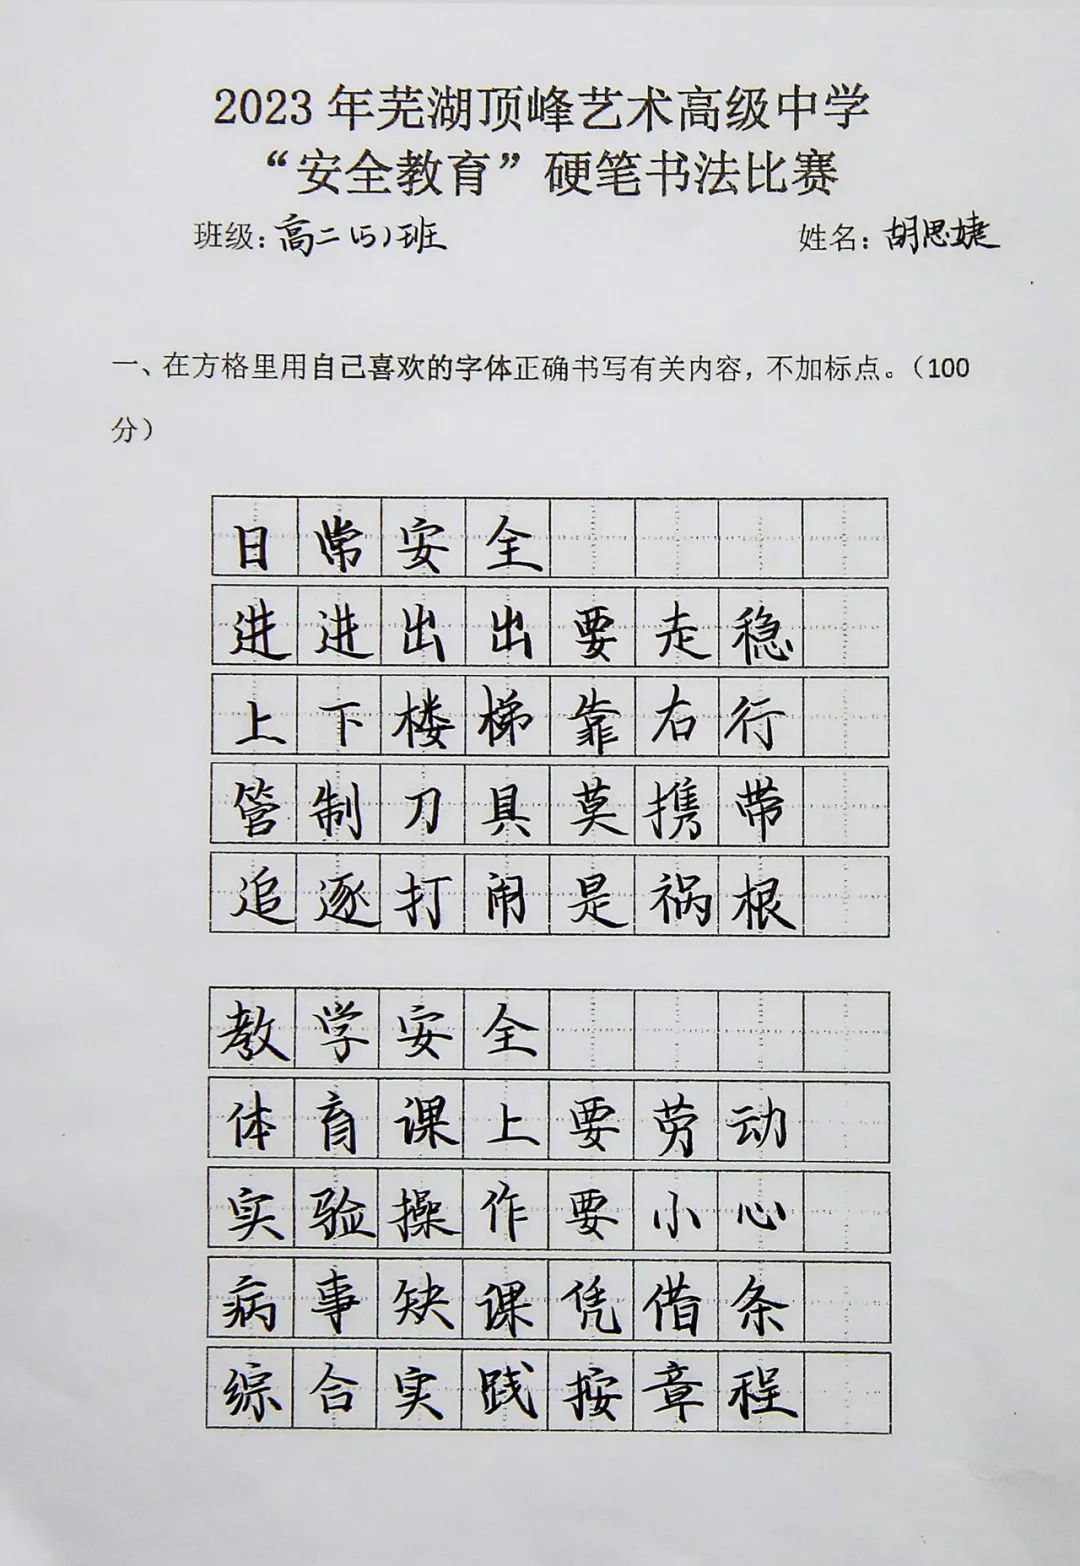 2023年芜湖顶峰艺术高级中学
“安全教育”硬笔书法比赛
班级：高二（5）班 姓名：胡思婕
一、在方格里用自己喜欢的字体正确书写有关内容，不加标点。（100
分）
日常安全
进进出出要走稳
上下楼梯靠右行
管制刀具莫携带
追逐打闹是祸根
教学安全
体育课上要劳动
实验操作要小心
病事缺课凭借条
综合实践按章程